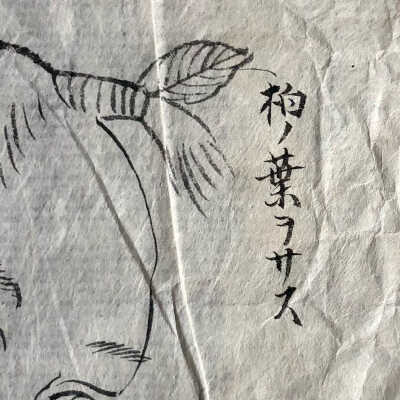 柏ノ葉ヲサス